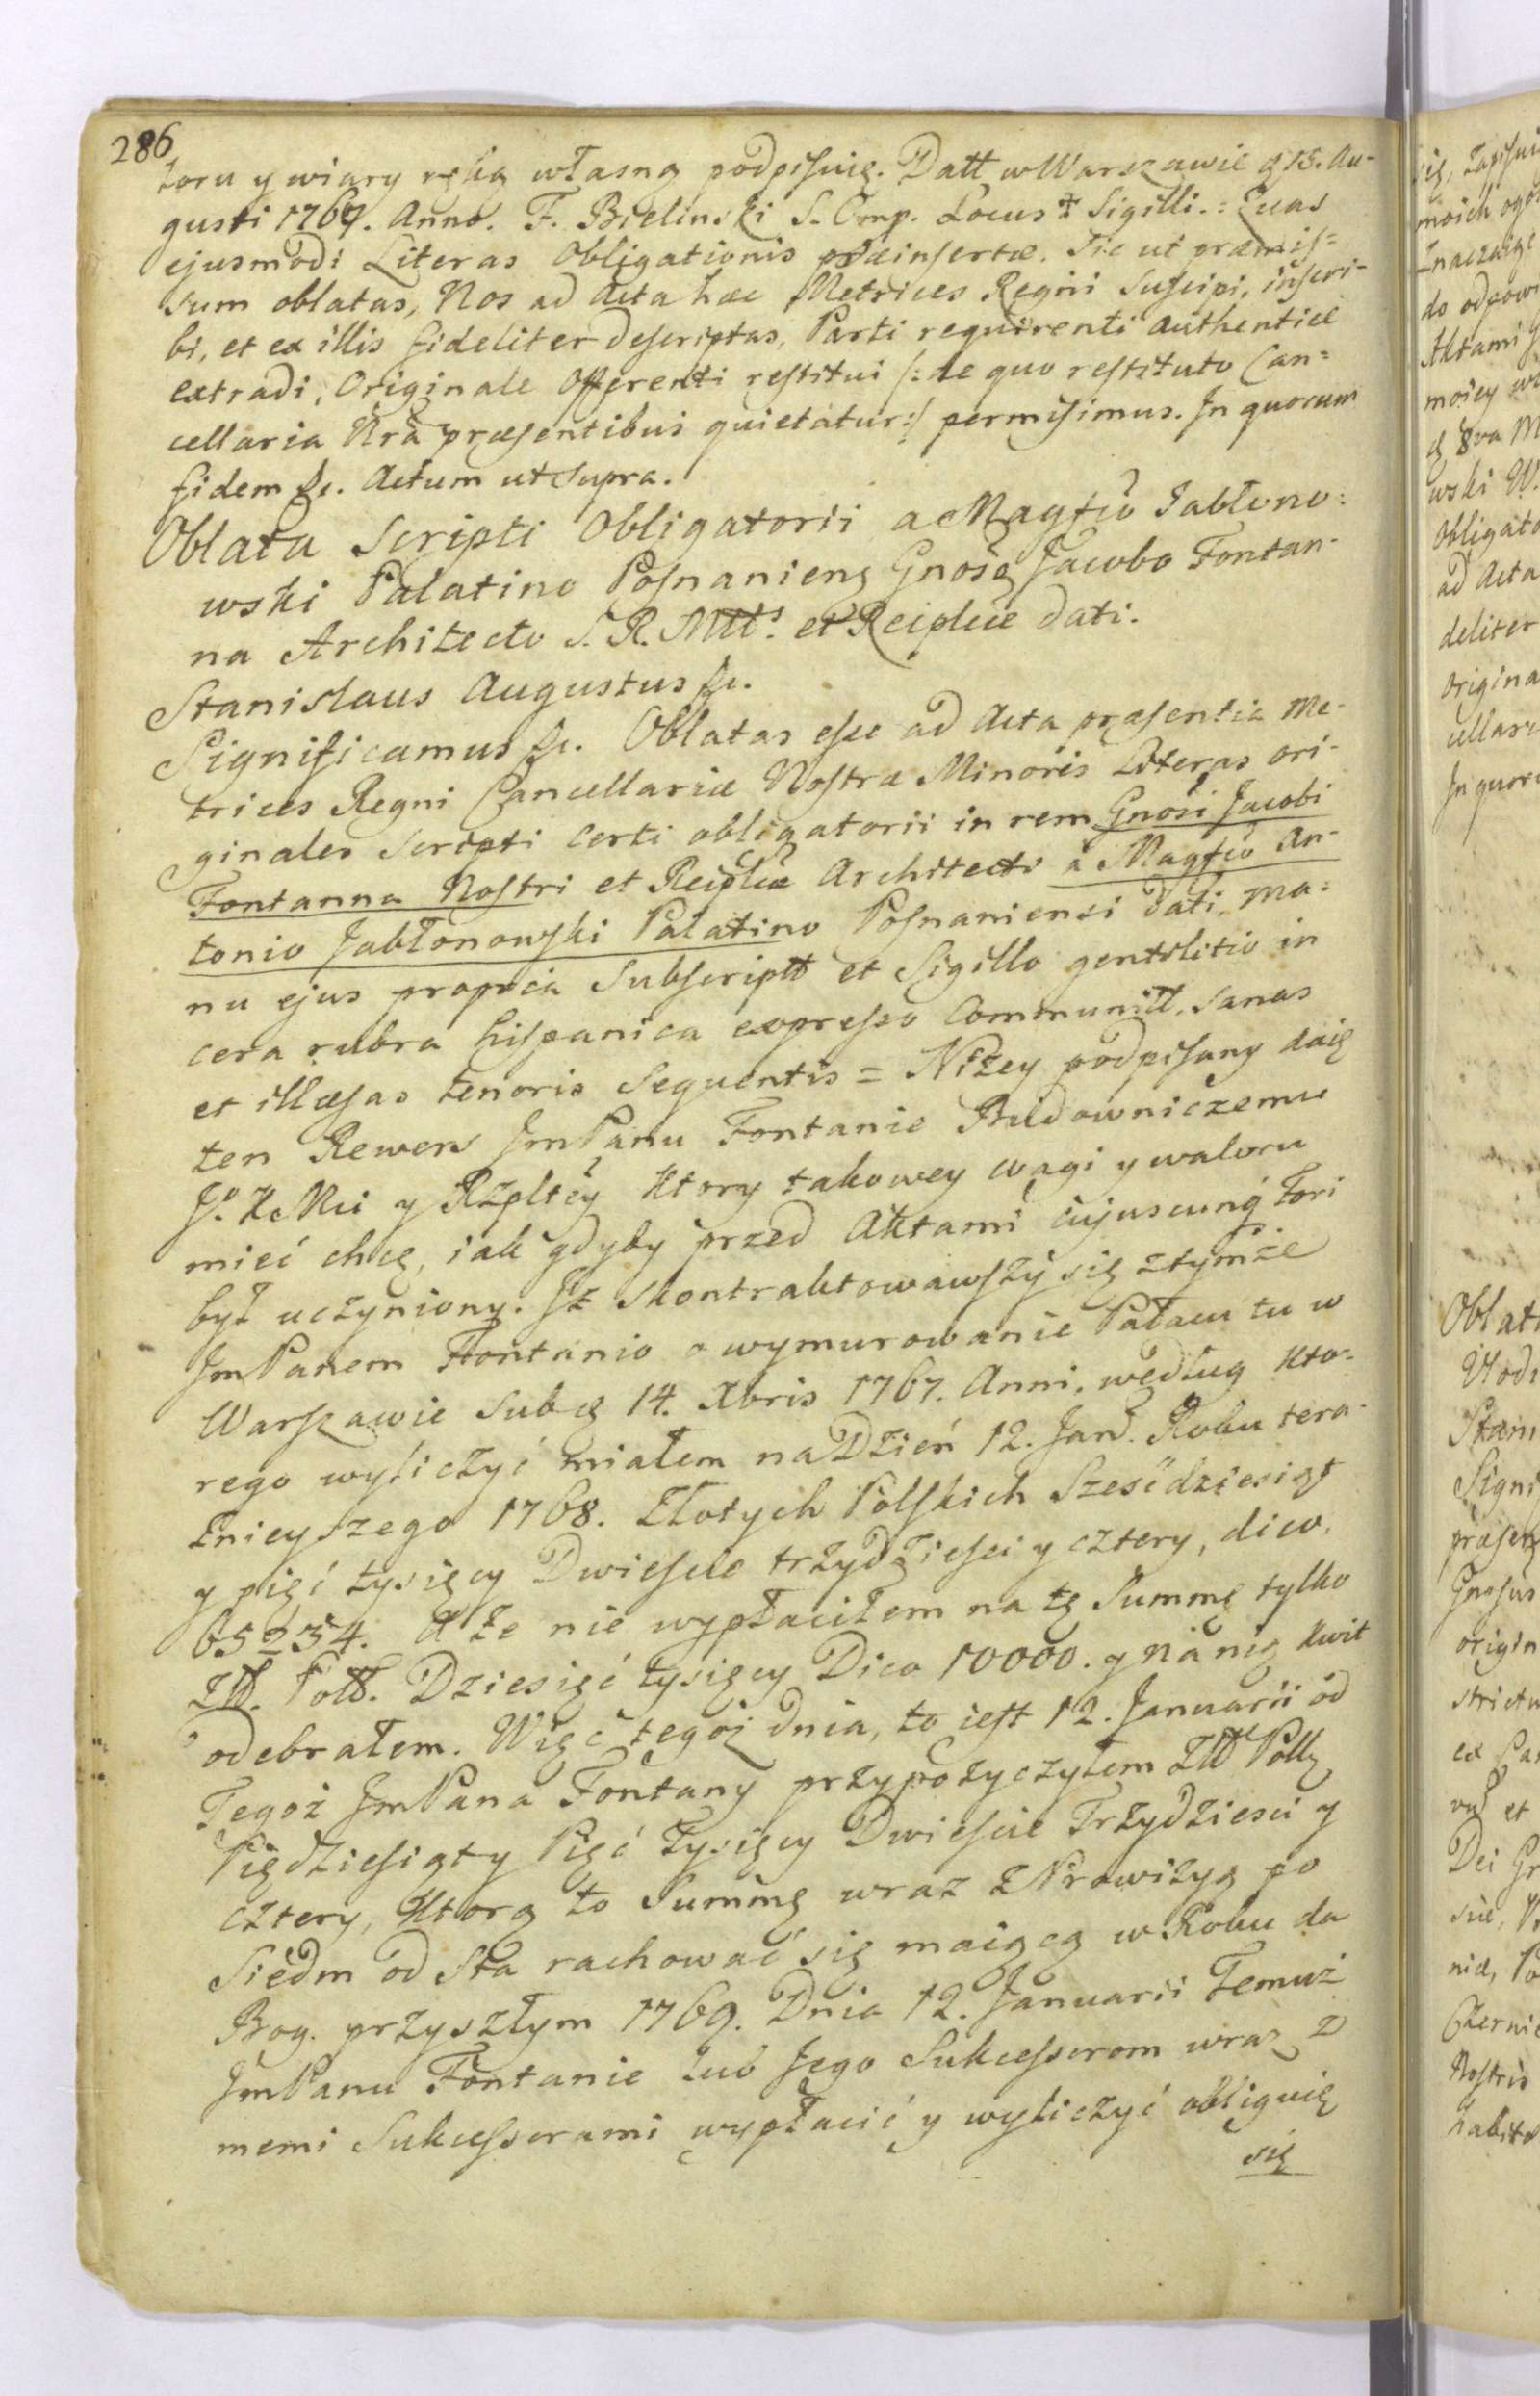 286
toru y wiary ręką własną podpisuię. Datt w Warszawie d 13. Au-
gusti 1767. Anno. F. Bielinski S. Cmp. Locus ‡ Sigilli. : Quas
ejusmodi Literas Obligationis præinsertæ. Sic ut præmis=
sum oblatas, Nos ad Acta hæc Metrices Regni suscipi, inscri-
bi, et ex illis fideliter descriptas, Parti requirenti authentice
extradi, Originale Offerenti restitui /: de quo restituto Can=
cellaria Nrã præsentibus quietatur :/ permisimus. In quorum
fidem &c. Actum ut supra.
Oblata Scripti Obligatorii a Magfco Jabłono=
wski Palatino Posnaniens Gnoso Jacobo Fontan-
na Architecto S. R. Mtts. et Reiplcæ dati.
Stanislaus Augustus &c.
Significamus &c. Oblatas esse ad Acta præsentia Me-
trices Regni Cancellariæ Nostræ Minoris Literas ori-
ginales Scripti certi obligatorii in rem Gnosi Jacobi
Fontanna Nostri et Reiplcæ Architecti à Magfco An-
tonio Jabłonowski Palatino Posnaniensi dati, ma=
nu ejus propria Subscriptt et Sigillo gentilitio in
cera rubra hispanica expresso Communitt. sanas
et illæsas tenoris sequentis = Niżey podpisany daię
ten Rewers JmPanu Fontanie Budowniczemu
J. K Mci y Rzpltey ktory takowey wagi y waloru
mieć chcę, iak gdyby przed Aktami cujuscunq fori
był uczyniony. Iż skontraktowawszy się ztymże
JmPanem Fontanio o wymurowanie Pałacu tu w
Warszawie sub d 14. Xbris 1767. Anni, według kto-
rego wyliczyć miałem na Dzień 12. Jan. Roku tera-
znieyszego 1768. Złotych Polskich Sześćdziesiąt
y pięć tysięcy Dwieście trzydzieści y cztery, dico.
65234. A że nie wypłaciłem na tę Summę tylko
Ztt. Poltt. Dziesięć tysięcy Dico 10000. y na nię kwit
odebrałem. Więc tegoż dnia, to iest 12. Januarii od
Tegoż JmPana Fontany przypożyczyłem Ztt Polk
Pięćdziesiąt y Pięć Tysięcy Dwieście Trzydzieści y
cztery, Ktorą to Summę wraz z Prowizyą po
Siedm od Sta rachować się maiącą w Roku da
Bog. przyszłym 1769. Dnia 12. Januarii Temuż
JmPanu Fontanie lub Jego Sukcessorom wraz z
memi Sukcessorami wypłacić y wyliczyć obliguię
się